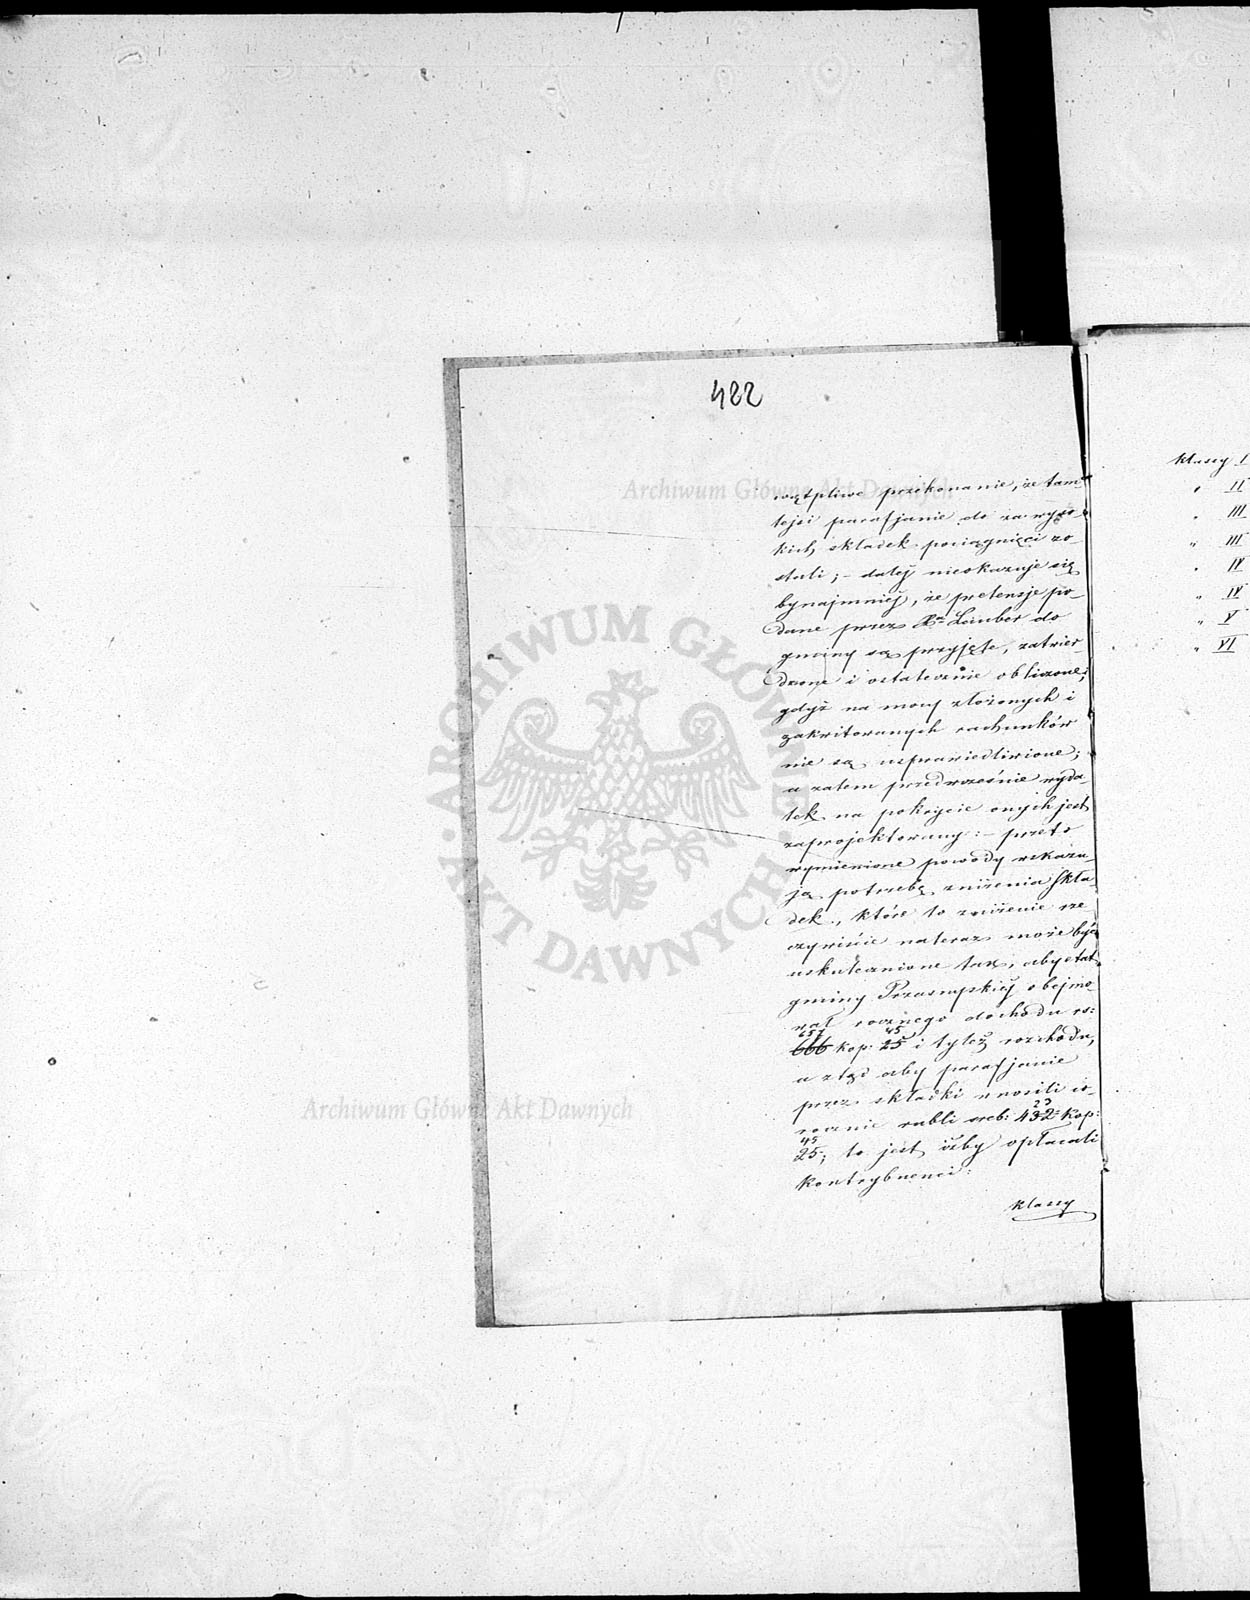 422
wątpliwe przekonanie, że tam
tejsi parafjanie do za wyso
kich składek pociągnięci zo
stali; – daléj nieokazuje się
bynajmniéj, że pretensje po-
dane przez Xa Lauber do
gminy są przyjęte, zatwier
dzone i ostatecznie obliczone,
gdyż na mocy złożonych i
zakwitowanych rachunków
nie są usprawiedliwione;
a zatem przedwcześnie wyda
tek na pokrycie onych jest
zaprojektowany: – przeto
wymienione powody wskazu-
ją potrzebę zniżenia skła
dek, które to zniżenie rze
czywiście na teraz może być
uskutecznione tak, aby etat
gminy Przasnyskiéj obejmo
wał rocznego dochodu rs:
657 45
666 kop. 25 i tyleż rozchodu,
a ztąd aby parafjanie
przez składki wnosili co-
23
rocznie rubli sreb: 432 kop:
45
25; to jest iżby opłacali
kontrybuenci:
klassy
Klassy I
" II
" III
" III
" IV
" IV
" V
" VI
Archiwum Główne Akt Dawnych
Archiwum Główne Akt Dawnych
ARCHIWUM GŁÓWNE · AKT DAWNYCH ·